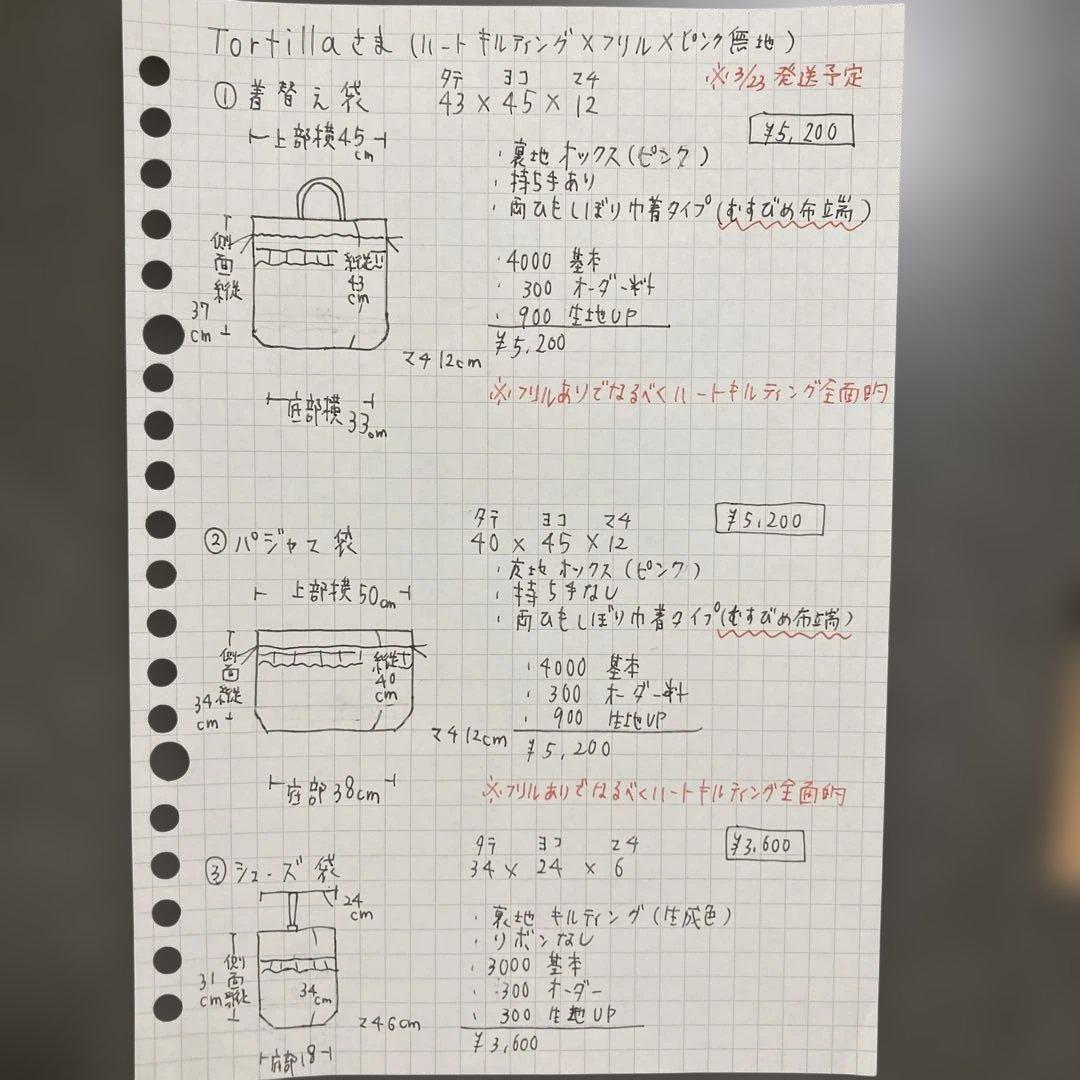 Tortillaさま(ハートキルティング×フリル×ピンク無地)
※3/23 発送予定
① 着替え袋
タテ ヨコ マチ
43 × 45 × 12
¥5,200
上部横45cm
・裏地 オックス(ピンク)
・持ち手あり
・両ひもしぼり巾着タイプ(むすびめ布端)
側面縦37cm
縦43cm
マチ12cm
底部横33cm
・4000 基本
・300 オーダー料
・900 生地UP
¥5,200
※フリルありでなるべくハートキルティング全面的
② パジャマ袋
タテ ヨコ マチ
40 × 45 × 12
¥5,200
上部横50cm
・裏地 オックス(ピンク)
・持ち手なし
・両ひもしぼり巾着タイプ(むすびめ布端)
側面縦34cm
縦40cm
マチ12cm
底部38cm
・4000 基本
・300 オーダー料
・900 生地UP
¥5,200
※フリルありでなるべくハートキルティング全面的
③ シューズ袋
タテ ヨコ マチ
34 × 24 × 6
¥3,600
24cm
側面縦31cm
34cm
マチ6cm
底部18
・裏地 キルティング(生成色)
・リボンなし
・3000 基本
・300 オーダー
・300 生地UP
¥3,600